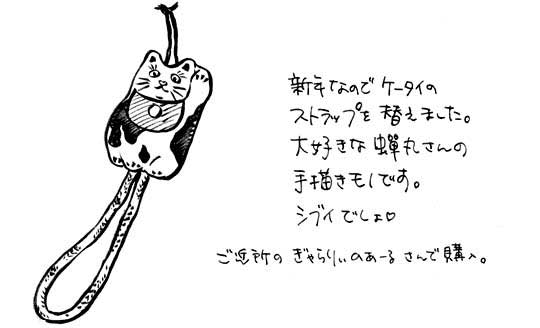 新年なのでケータイの
ストラップを替えました。
大好きな蝉丸さんの
手描きモノです。
シブイでしょ♡
ご近所のぎゃらりぃのあーるさんで購入。